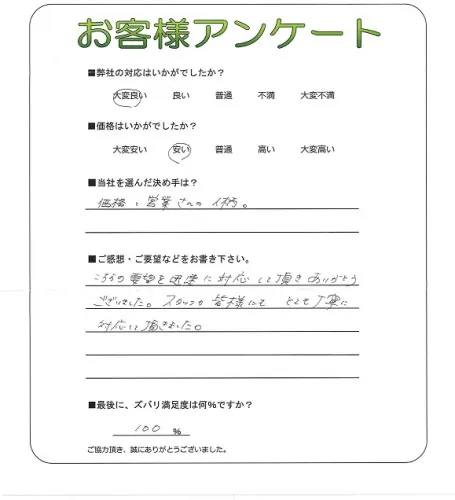 お客様アンケート
■弊社の対応はいかがでしたか？
大変良い 良い 普通 不満 大変不満
■価格はいかがでしたか？
大変安い 安い 普通 高い 大変高い
■当社を選んだ決め手は？
価格と営業さんの人柄。
■ご感想・ご要望などをお書き下さい。
こちらの要望を迅速に対応して頂きありがとう
ございました。スタッフの皆様にも とても丁寧に
対応して頂きました。
■最後に、ズバリ満足度は何％ですか？
100 ％
ご協力頂き、誠にありがとうございました。